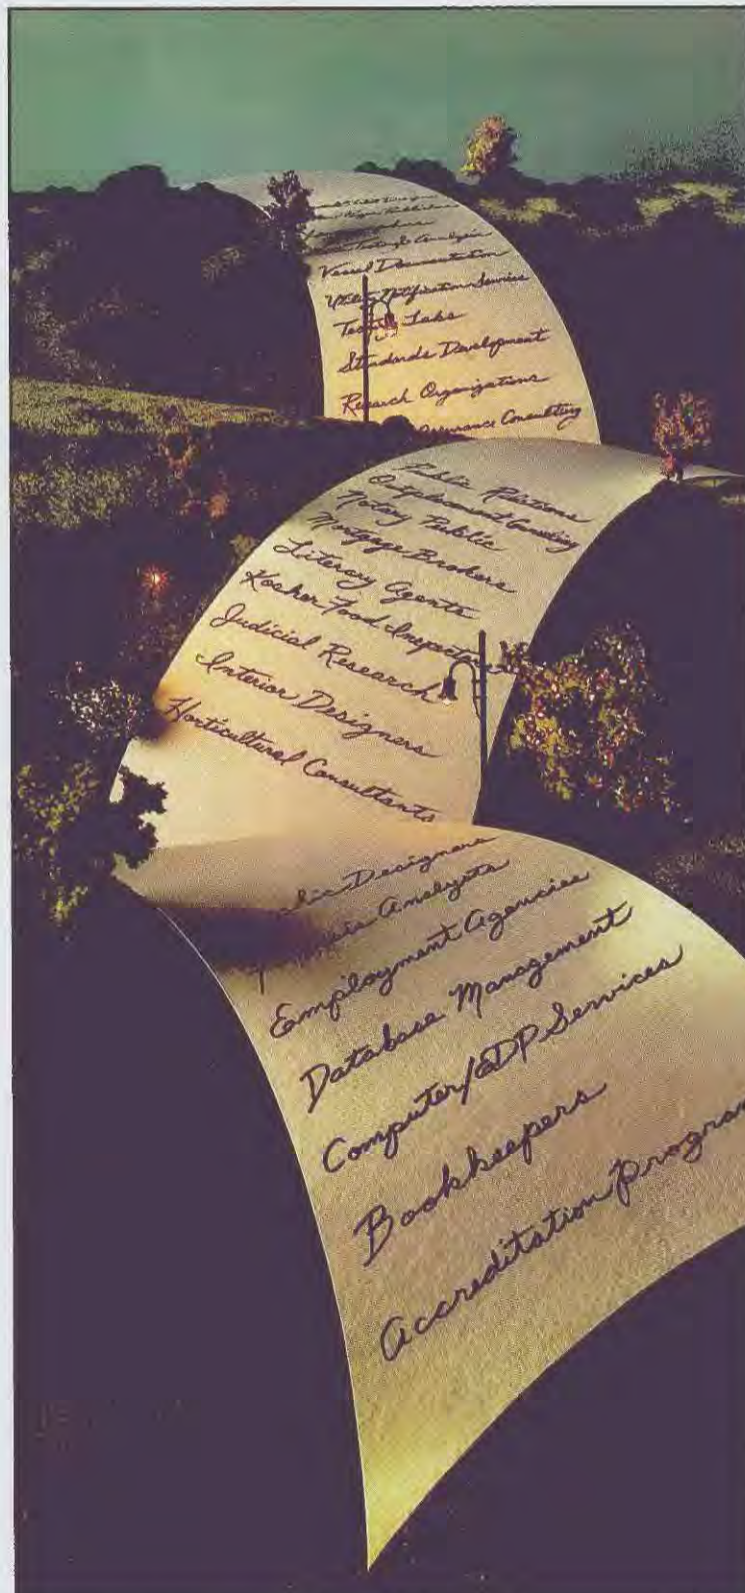 Analysis
Vessel Documentation
Utility Notification Service
Labs
Standards Development
Research Organizations
Assurance Consulting
Public Relations
Outplacement Counseling
Notary Public
Mortgage Brokers
Literary Agents
Kosher Food
Judicial Research
Interior Designers
Horticultural Consultants
Designers
Analysts
Employment Agencies
Database Management
Computer/EDP Services
Bookkeepers
Accreditation Program